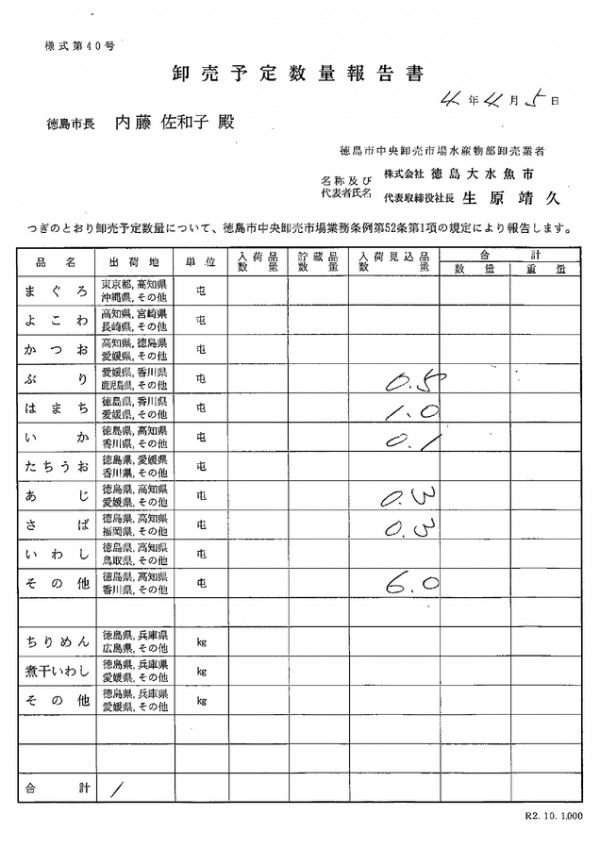 様式第40号
卸売予定数量報告書
4年4月5日
徳島市長 内藤 佐和子 殿
徳島市中央卸売市場水産物部卸売業者
名称及び 株式会社 徳島大水魚市
代表者氏名 代表取締役社長 生原靖久
つぎのとおり卸売予定数量について、徳島市中央卸売市場業務条例第52条第1項の規定により報告します。
品名 出荷地 単位 入荷品数量 貯蔵品数量 入荷見込品数量 合計
数量 重量
まぐろ 東京都, 高知県 屯
沖縄県, その他
よこわ 高知県, 宮崎県 屯
長崎県, その他
かつお 高知県, 徳島県 屯
愛媛県, その他
ぶり 愛媛県, 香川県 屯 0.5
鹿児島県, その他
はまち 徳島県, 香川県 屯 1.0
愛媛県, その他
いか 徳島県, 高知県 屯 0.1
香川県, その他
たちうお 徳島県, 愛媛県 屯
香川県, その他
あじ 徳島県, 高知県 屯 0.3
愛媛県, その他
さば 徳島県, 高知県 屯 0.3
福岡県, その他
いわし 徳島県, 高知県 屯
鳥取県, その他
その他 徳島県, 高知県 屯 6.0
香川県, その他
ちりめん 徳島県, 兵庫県 kg
広島県, その他
煮干いわし 徳島県, 兵庫県 kg
愛媛県, その他
その他 徳島県, 兵庫県 kg
愛媛県, その他
合計 /
R2. 10. 1,000